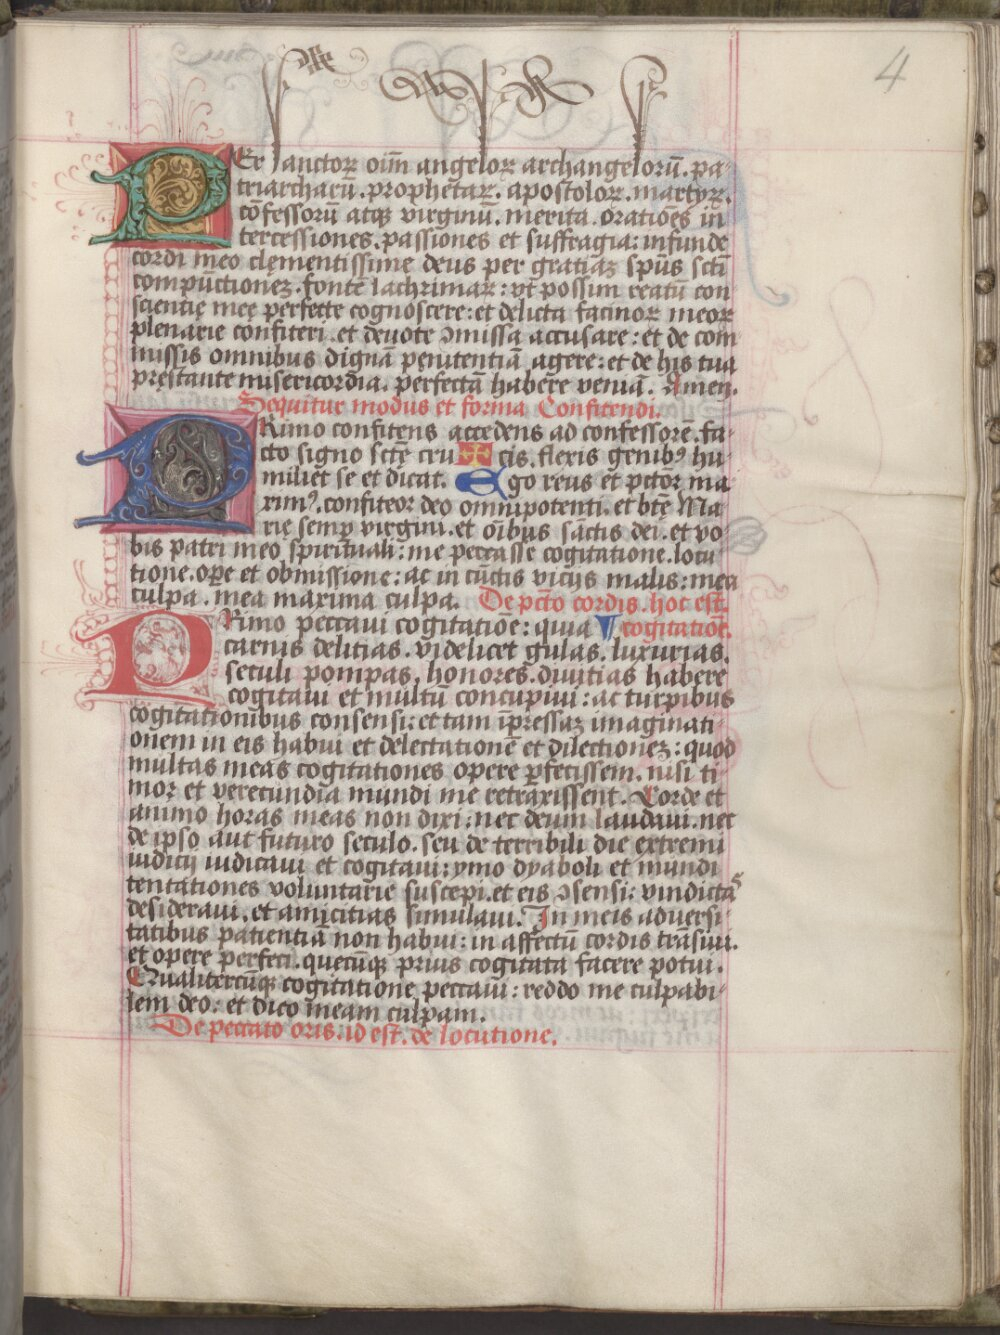 4
PEr sanctoꝝ oīm angeloꝝ archangelorū. pa-
triarcharū. prophetaꝝ. apostoloꝝ. martyꝝ.
cōfessorū atqꝫ virginū. merita. oratiōes in
tercessiones. passiones et suffragia: infunde
cordi meo clementissime deus per gratiāꝫ spūs scti
compūctionēꝫ. fontē lachrimaꝝ: vt possim reatū con
scientie mee perfecte cognoscere: et delicta facinoꝝ meoꝝ
plenarie confiteri. et deuote ↄmissa accusare: et de com
missis omnibus dignā penitentiā agere: et de his tua
prestante misericordia. perfectā habere veniā. Amen.
Sequitur modus et forma Confitendi.
PRimo confitens accedens ad confessorē. fa-
cto signo scte cru ✠ cis. flexis genibꝰ hu-
miliet se et dicat. Ego reus et pctōr ma
rimꝰ. confiteor deo omnipotenti. et bte Ma
rie semꝑ virgini. et oībus sāctis dei. et vo
bis patri meo spirituali: me peccasse cogitatione. locu
tione. oꝑe et obmissione: ac in cūctis vicijs malis: mea
culpa. mea maxima culpa. De pctō cordis. hoc est.
PRimo peccaui cogitatiōe: quia cogitatiōe.
carnis delitias. videlicet gulas. luxurias.
seculi pompas. honores. diuitias habere
cogitaui et multū concupiui: ac turpibus
cogitationibus consensi: et tam īpressaꝫ imaginati
onem in eis habui et delectationē et dilectionēꝫ: quod
multas meas cogitationes opere ꝑfecissem. nisi ti
mor et verecundia mundi me retraxissent. Corde et
animo horas meas non dixi: nec deum laudaui. nec
de ipso aut futuro seculo. seu de terribili die extremi
iudicij iudicaui et cogitaui: ymo dyaboli et mundi
tentationes voluntarie suscepi. et eis ↄsensi: vindictā
desideraui. et amicitias simulaui. In meis aduersi
tatibus patientiā non habui: in affectū cordis trāsiui.
et opere perfeci. quecūqꝫ prius cogitata facere potui.
Qualitercūqꝫ cogitatione peccaui: reddo me culpabi-
lem deo: et dico meam culpam.
De peccato oris. id est. de locutione.